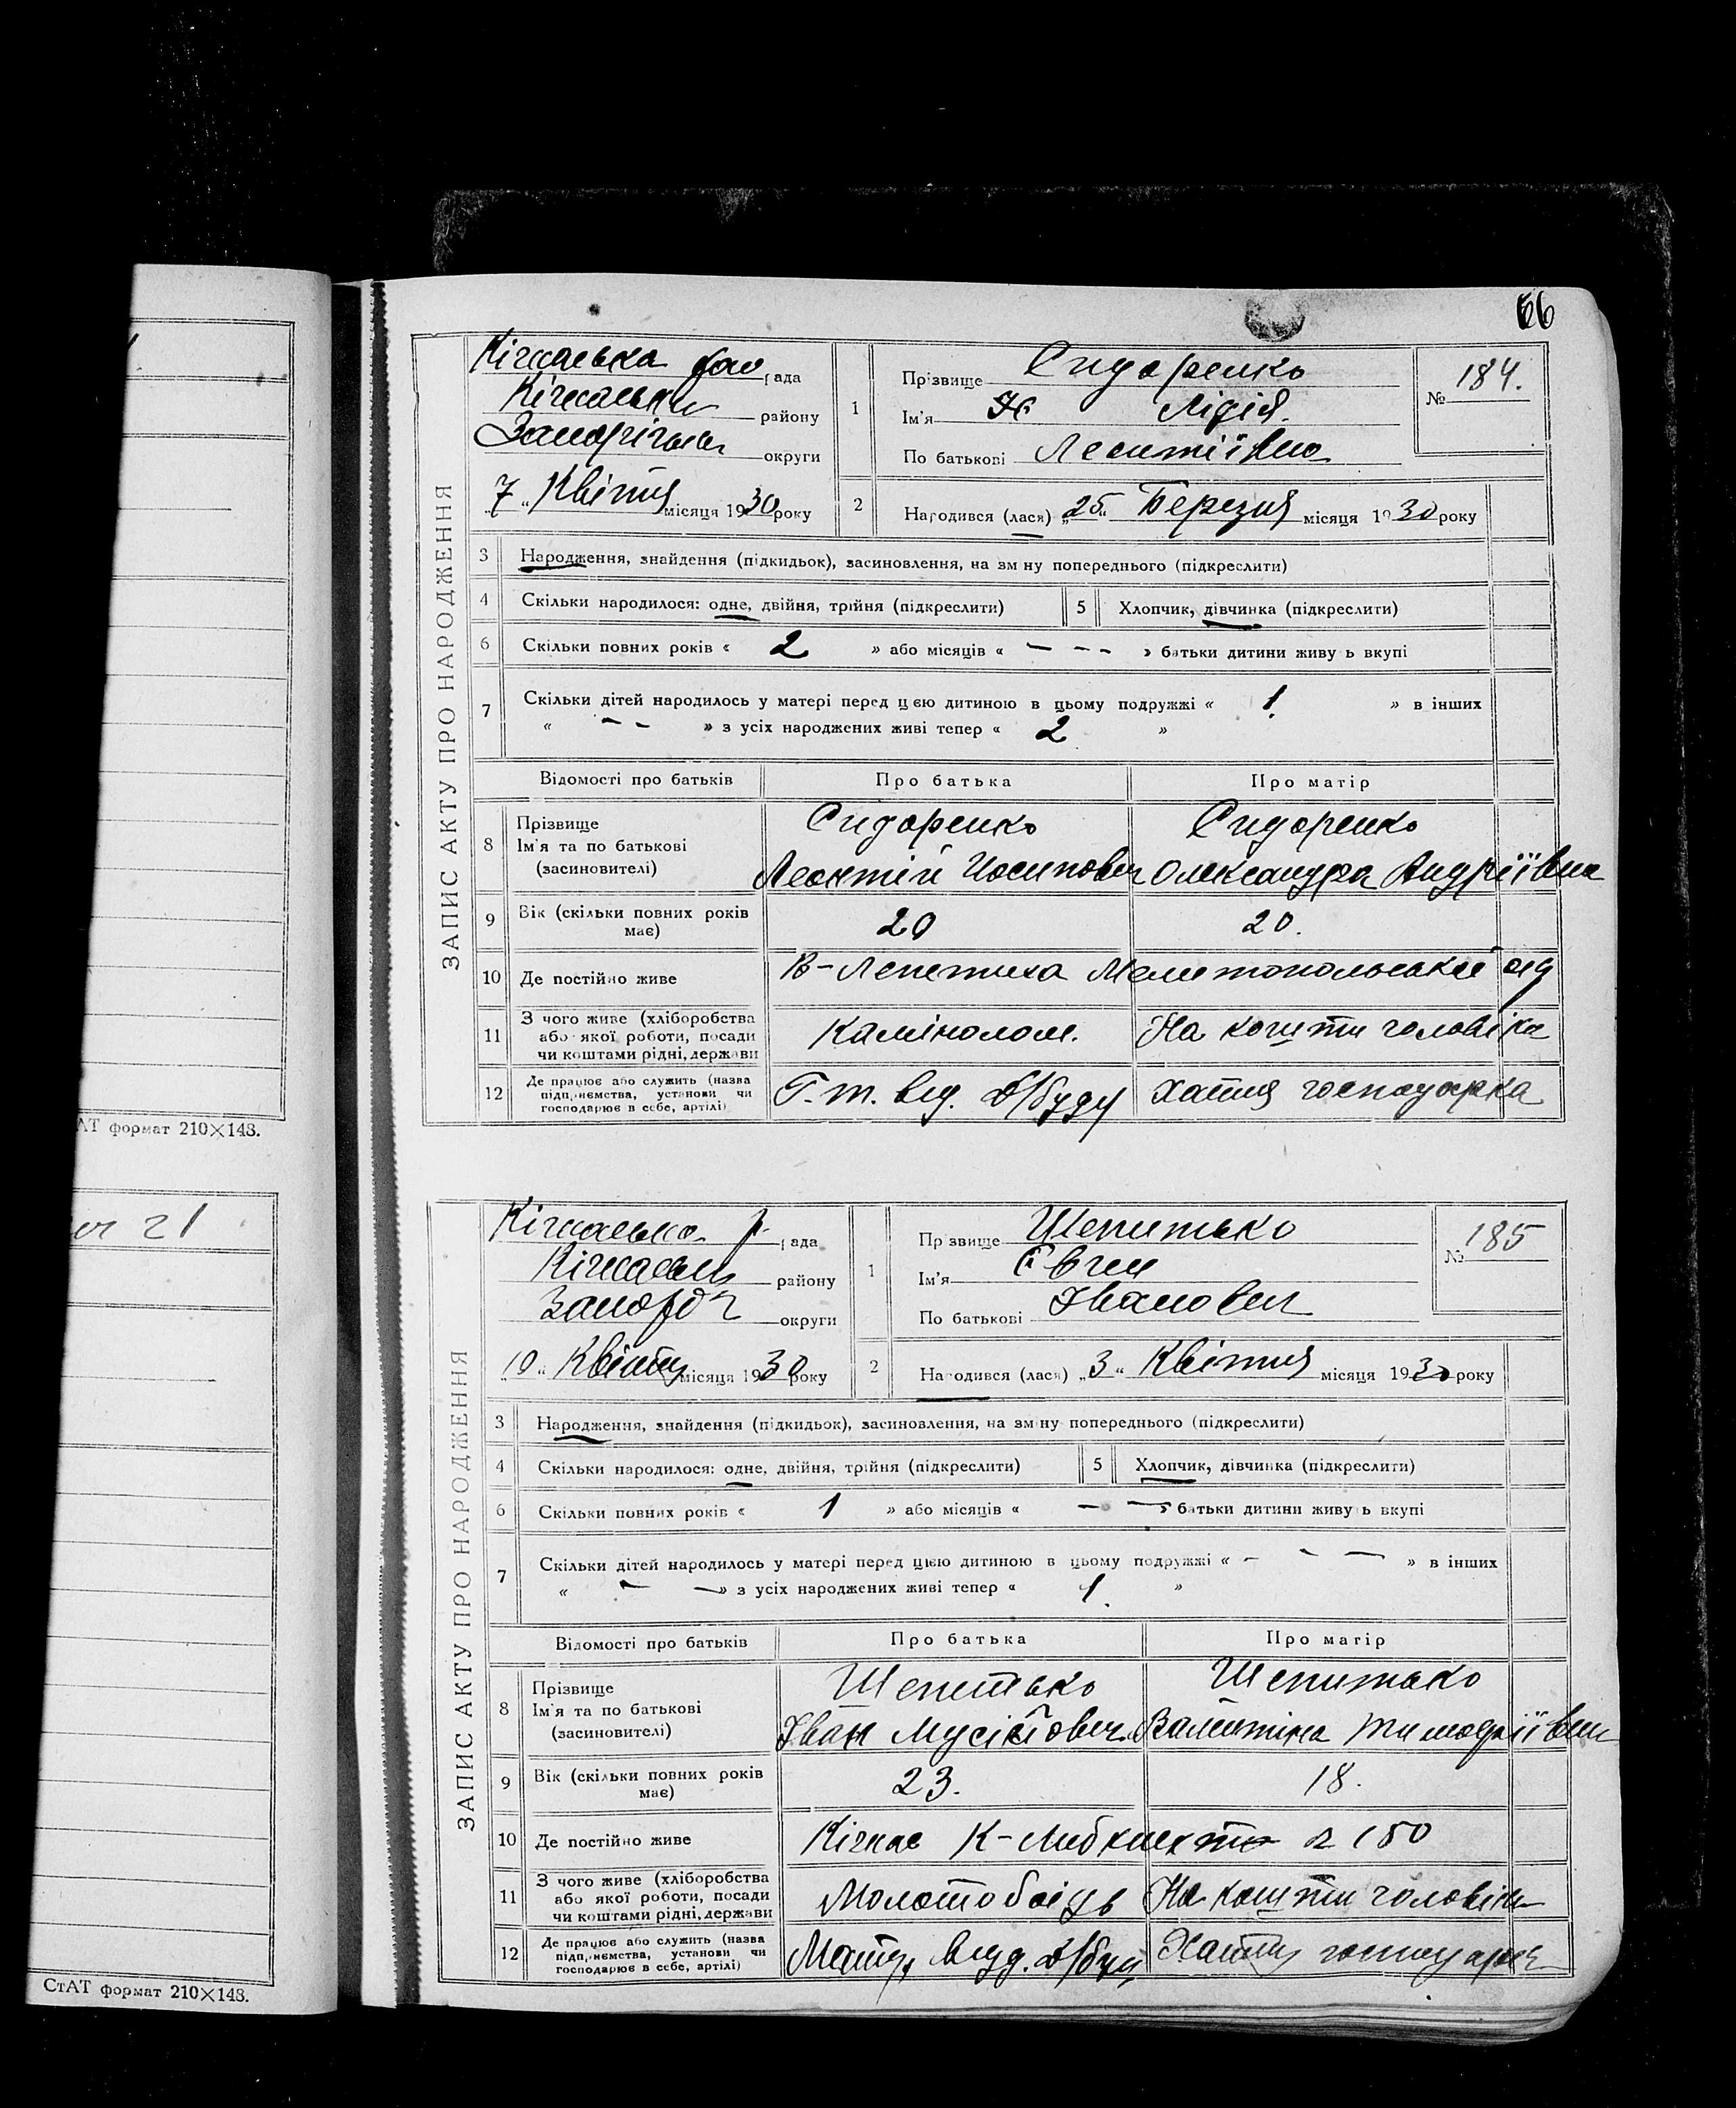 66
ЗАПИС АКТУ ПРО НАРОДЖЕННЯ
Кічкаська рада
Кічкаськ району
Запоріжськ округи
„7“ Квітня місяця 1930 року
1
Прізвище Сидоренко
Ім'я Лідія
По батькові Леонтіївна
№ 184.
2
Народився (лася) „25“ Березня місяця 1930 року
3 Народження, знайдення (підкидьок), засиновлення, на зміну попереднього (підкреслити)
4 Скільки народилося: одне, двійня, трійня (підкреслити)
5 Хлопчик, дівчинка (підкреслити)
6 Скільки повних років « 2 » або місяців « — – – » батьки дитини живуть вкупі
7 Скільки дітей народилось у матері перед цією дитиною в цьому подружжі « 1. » в інших
« – – » з усіх народжених живі тепер « 2 »
Відомості про батьків Про батька Про матір
8 Прізвище
Ім'я та по батькові
(засиновителі)
Сидоренко
Леонтій Йосипович
Сидоренко
Олександра Андріївна
9 Вік (скільки повних років
має)
20 20.
10 Де постійно живе В-Лепетиха Мелитопольської окр
11 З чого живе (хліборобства
або якої роботи, посади
чи коштами рідні, держави
Камінолом. На кошти чоловіка
12 Де працює або служить (назва
підприємства, установи чи
господарює в себе, артілі)
Г.т. від. Д/буду Хатня господарка
ЗАПИС АКТУ ПРО НАРОДЖЕННЯ
Кічкаська р. рада
Кічкаськ району
Запоріз округи
„10“ Квітня місяця 1930 року
1
Прізвище Шепитько
Ім'я Євген
По батькові Іванович
№ 185
2
Народився (лася) „3“ Квітня місяця 1930 року
3 Народження, знайдення (підкидьок), засиновлення, на зміну попереднього (підкреслити)
4 Скільки народилося: одне, двійня, трійня (підкреслити)
5 Хлопчик, дівчинка (підкреслити)
6 Скільки повних років « 1 » або місяців « – — » батьки дитини живуть вкупі
7 Скільки дітей народилось у матері перед цією дитиною в цьому подружжі « – – — » в інших
« – — » з усіх народжених живі тепер « 1. »
Відомості про батьків Про батька Про матір
8 Прізвище
Ім'я та по батькові
(засиновителі)
Шепитько
Іван Мусійович
Шепитько
Валентина Тимофіївна
9 Вік (скільки повних років
має)
23. 18.
10 Де постійно живе Кічкас К-Либкнехта 150
11 З чого живе (хліборобства
або якої роботи, посади
чи коштами рідні, держави
Молотобоєць На кошти чоловіка
12 Де працює або служить (назва
підприємства, установи чи
господарює в себе, артілі)
відд. Д/буд Хатня господарка
АТ формат 210×148.
21
СтАТ формат 210×148.